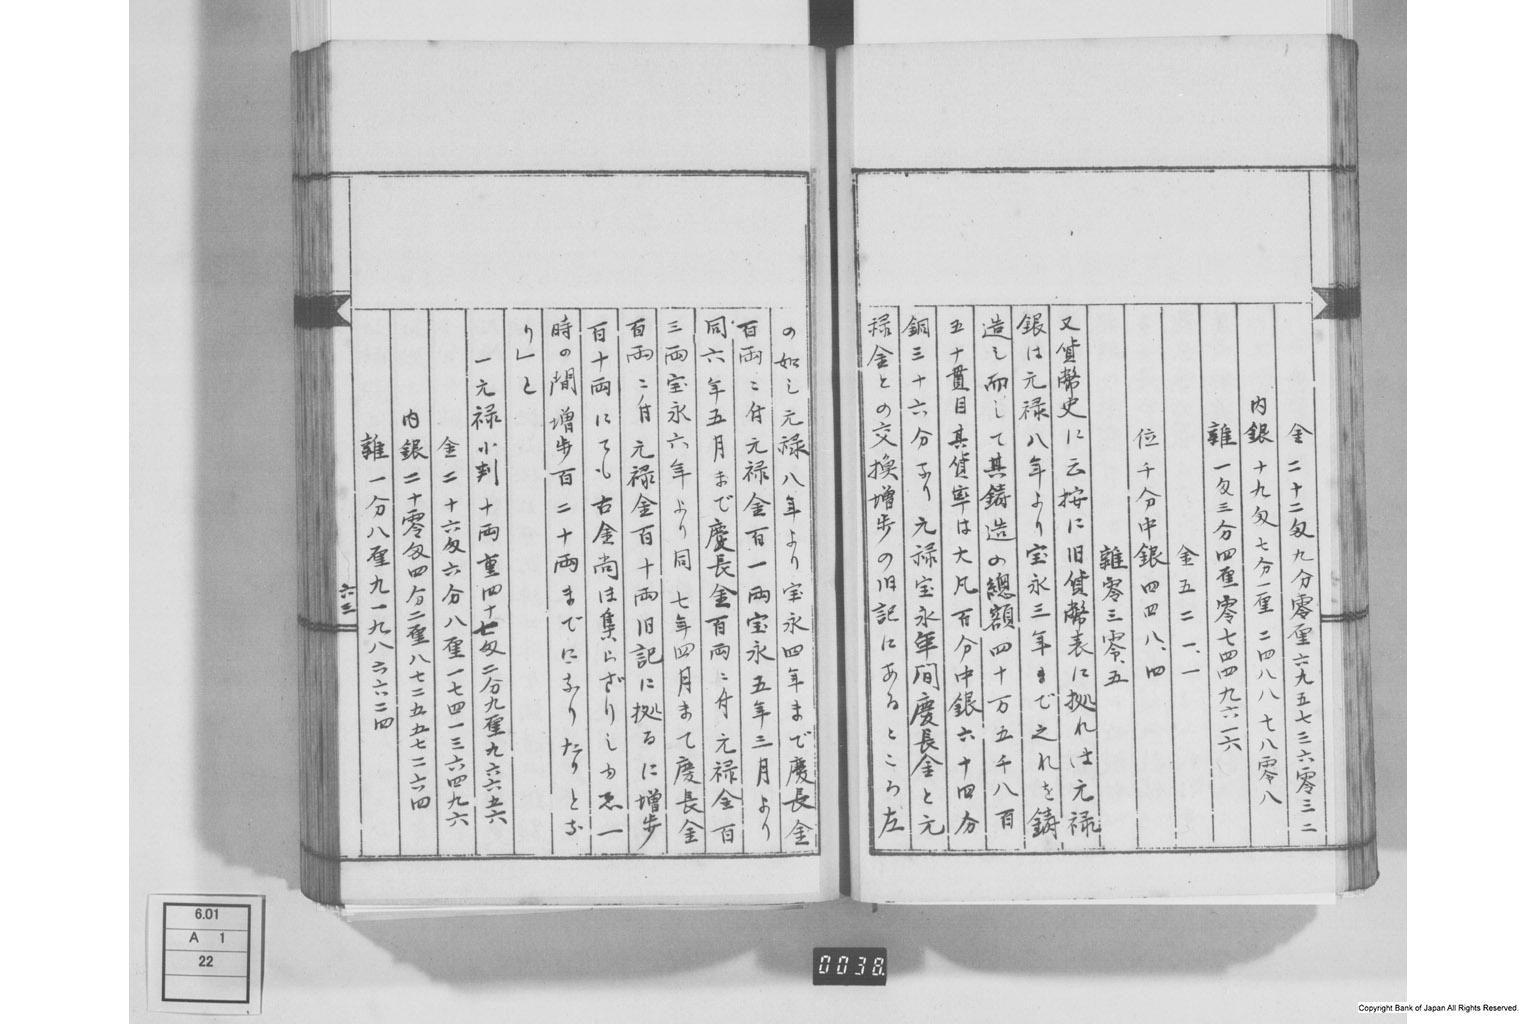 金 二十二匁九分零厘六九五七三六零三二
内銀 十九匁七分一厘二四八八七八零八
雑 一匁三分四厘零七四四九六一六
金五二一、一
位千分中銀四四八、四
雑零三零、五
又貨幣史に云按に旧貨幣表に拠れは元禄
銀は元禄八年より宝永三年まで之れを鋳
造し而して其鋳造の總額四十万五千八百
五十貫目其貨率は大凡百分中銀六十四分
銅三十六分なり元禄宝永年間慶長金と元
禄金との交換増歩の旧記にあるところ左
の如し元禄八年より宝永四年まで慶長金
百両ニ付元禄金百一両宝永五年三月より
同六年五月まで慶長金百両ニ付元禄金百
三両宝永六年より同七年四月まて慶長金
百両ニ付元禄金百十両旧記に拠るに増歩
百十両にても古金尚ほ集らざりし由ゑ一
時の間増歩百二十両までになりたりとな
り」と
一元禄小判十両重四十七匁二分九厘九六六五六
金二十六匁六分八厘一七四一三六四九六
内銀二十零匁四分二厘八七二五五七二六四
雑一分八厘九一九八六六二四
六三
6.01
A 1
22
0038
Copyright Bank of Japan All Rights Reserved.